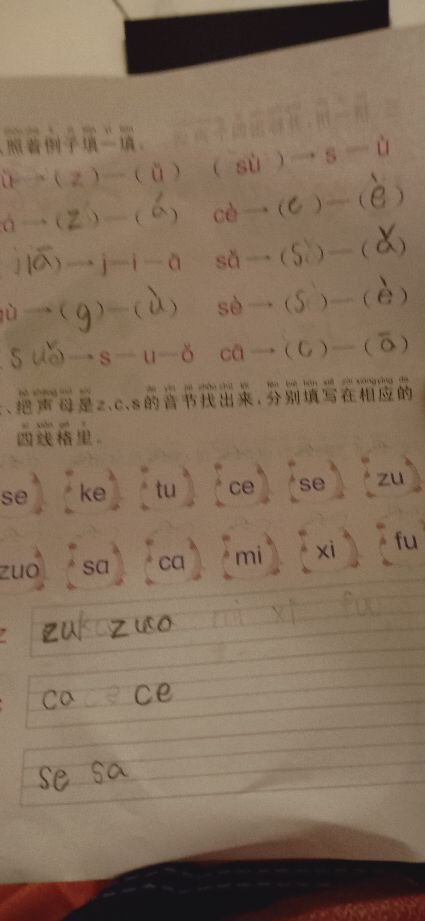 照着例子填一填。
ǔ → (z) — (ǔ) (sù) → s — ù
á → (z) — (á) cè → (c) — (è)
jiā) → j — i — ā sǎ → (s) — (ǎ)
gù → (g) — (ù) sè → (s) — (è)
suǒ) → s — u — ǒ cā → (c) — (ā)
、把声母是z、c、s的音节找出来，分别填写在相应的
四线格里。
se ke tu ce se zu
zuo sa ca mi xi fu
z zu zuo
ca ce
se sa